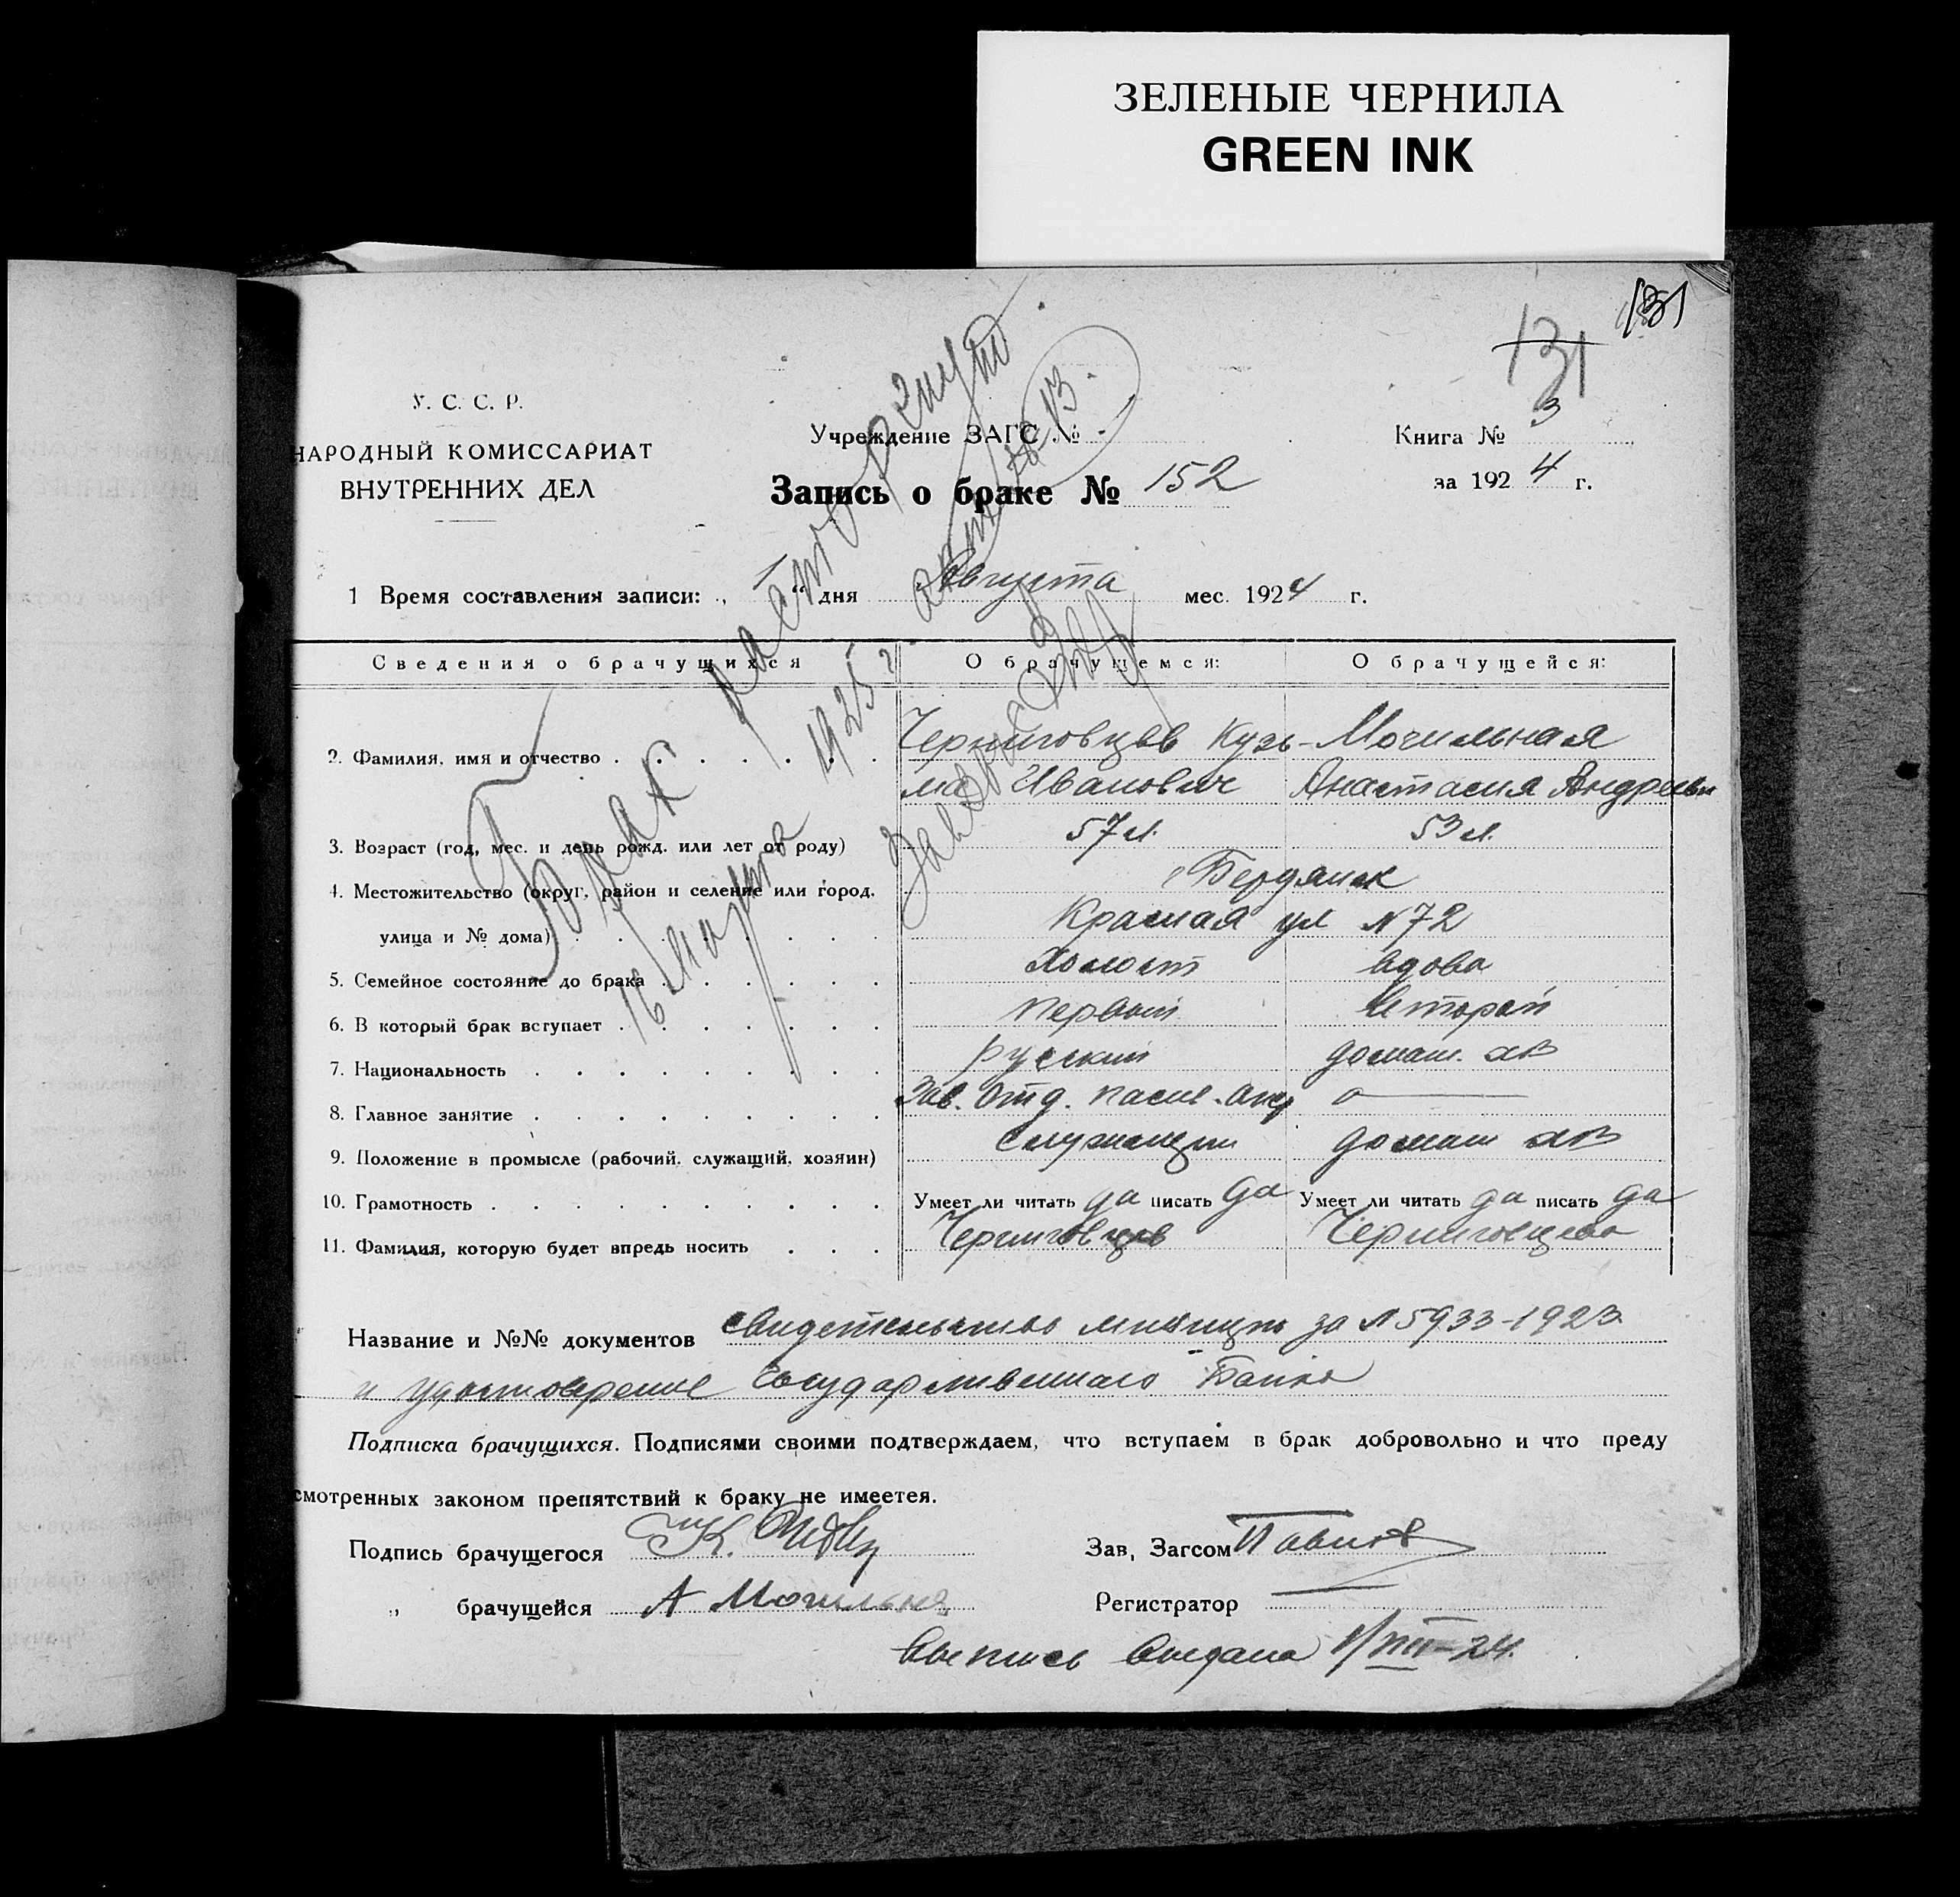 ЗЕЛЕНЫЕ ЧЕРНИЛА
GREEN INK
131
131
У. С. С. Р.
НАРОДНЫЙ КОМИССАРИАТ
ВНУТРЕННИХ ДЕЛ
Учреждение ЗАГС №
Книга № 3
Запись о браке № 152
за 1924 г.
1 Время составления записи: „ 1 “ дня Августа мес. 1924 г.
Брак расторгнут
16 марта 1925 г. акт № 13
Сведения о брачущихся О брачущемся: О брачущейся:
2. Фамилия, имя и отчество Черниговцев Кузь- Могильная
ма Иванович Анастасия Андреевн
3. Возраст (год, мес. и день рожд. или лет от роду) 57 л. 53 л.
4. Местожительство (округ, район и селение или город, Бердянск
улица и № дома) Красная ул N 72
5. Семейное состояние до брака Холост вдова
6. В который брак вступает первый второй
7. Национальность русский домаш. хоз
8. Главное занятие Зав. Отд.
9. Положение в промысле (рабочий, служащий, хозяин) Служащий домаш хоз
10. Грамотность Умеет ли читать да писать да Умеет ли читать да писать да
11. Фамилия, которую будет впредь носить Черниговцев Черниговцева
Название и №№ документов свидетельство милиции за N 5933-1923
и удостоверение Государственного Банка
Подписка брачущихся. Подписями своими подтверждаем, что вступаем в брак добровольно и что преду
смотренных законом препятствий к браку не имеетея.
Подпись брачущегося К.
Зав, Загсом Павлов
„ брачущейся А Могильна
Регистратор
Выпись выдана 1/VIII-24.